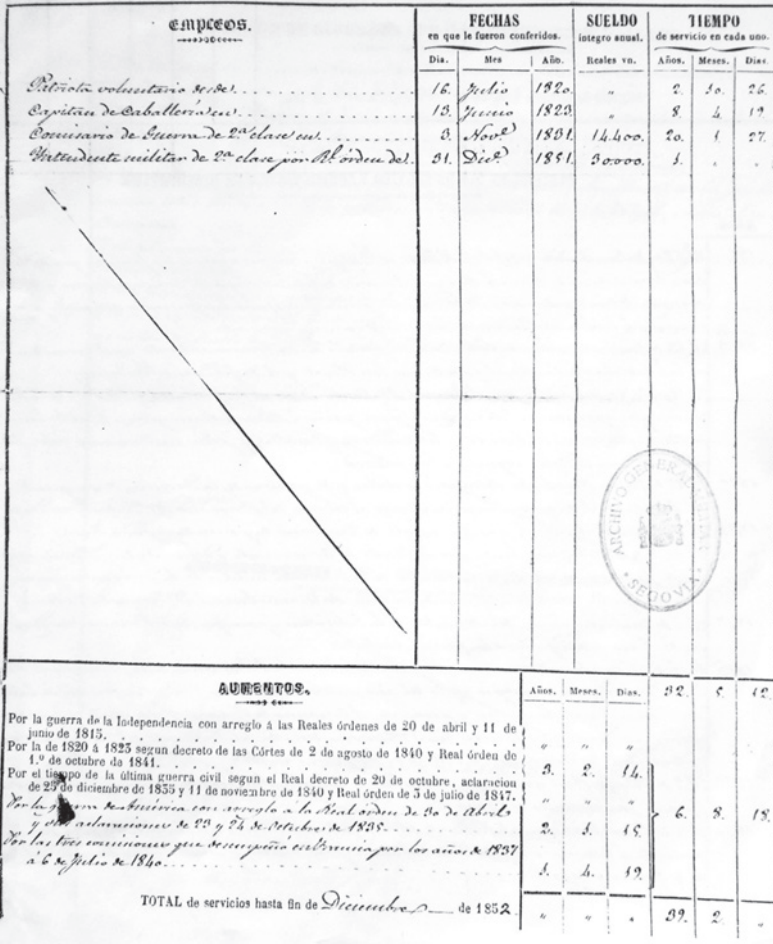 EMPLEOS.
FECHAS
en que le fueron conferidos.
SUELDO
íntegro anual.
TIEMPO
de servicio en cada uno.
Dia. Mes Año. Reales vn. Años. Meses. Dias.
Patriota voluntario desde 16. Julio 1820. " 2. 10. 26.
Capitan de Caballeria en 13. Junio 1823. " 8. 4. 19.
Comisario de Guerra de 2ª clase en 3. Novᵉ 1831. 14.400. 20. 1. 27.
Yntendente militar de 2ª clase por Rˡ órden de 31. Dicᵉ 1851. 30.000. 1. " "
ARCHIVO GENERAL MILITAR
SEGOVIA
AUMENTOS.
Años. Meses. Dias. 32. 5. 12.
Por la guerra de la Independencia con arreglo á las Reales órdenes de 20 de abril y 11 de
junio de 1815. " " "
Por la de 1820 á 1823 segun decreto de las Córtes de 2 de agosto de 1840 y Real órden de
1.º de octubre de 1841. 3. 2. 14.
Por el tiempo de la última guerra civil segun el Real decreto de 20 de octubre, aclaracion
de 23 de diciembre de 1835 y 11 de noviembre de 1840 y Real órden de 3 de julio de 1847. " " "
Por la guerra de América con arreglo á la Real orden de 30 de Abril
y aclaraciones de 23 y 24 de Octubre de 1835. 2. 1. 15. 6. 8. 18.
Por las tres comisiones que desempeño en por los años de 1837
á 6 de Julio de 1840. 1. 4. 19.
TOTAL de servicios hasta fin de Diciembre de 1852. " " " 39. 2. "